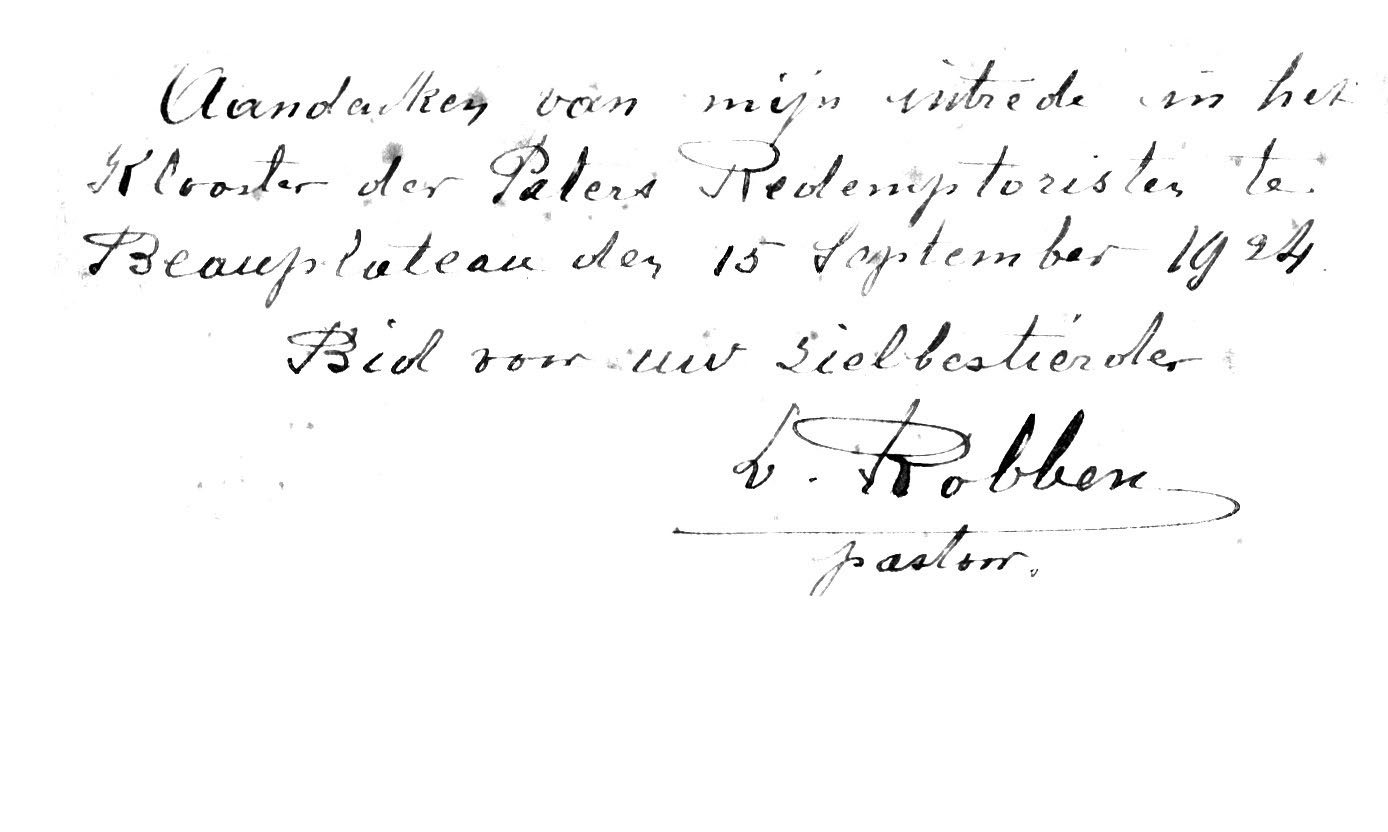 Aandenken van mijn intrede in het
Klooster der Paters Redemptoristen te
Beauplateau den 15 September 1924
Bid voor uw zielbestierder
L. Robben
pastoor.